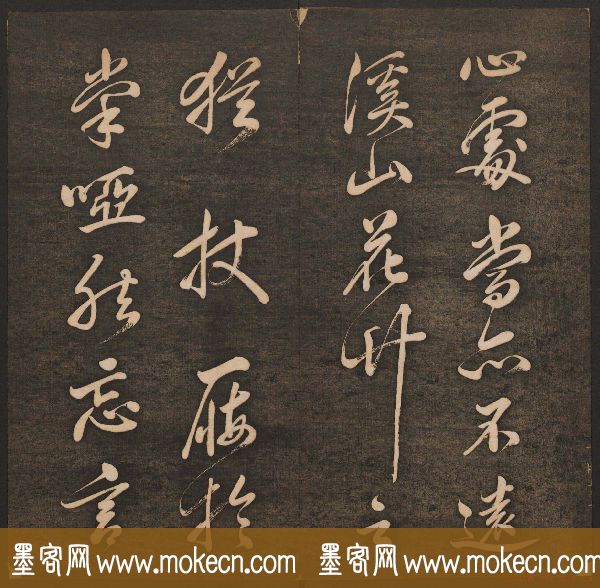 心處當亦不遠
溪山花竹
杖屨於
掌啞然忘言
墨客网 www.mokecn.com 墨客网 www.mokecn.com